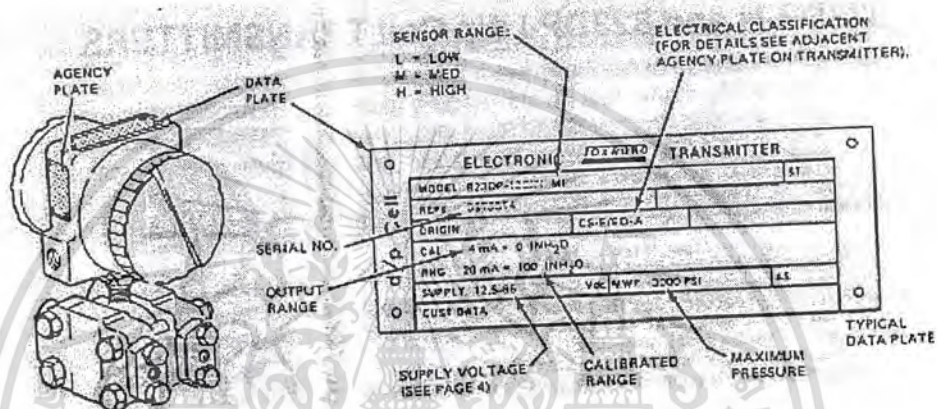 SENSOR RANGE:
L = LOW
M = MED
H = HIGH
ELECTRICAL CLASSIFICATION
(FOR DETAILS SEE ADJACENT
AGENCY PLATE ON TRANSMITTER).
AGENCY
PLATE
DATA
PLATE
ELECTRONIC FOXBORO TRANSMITTER
d p Cell
MODEL ST
REFE
ORIGIN CS-E/GD-A
CAL 4 mA = 0 INH2O
RNG 20 mA = 100 INH2O
SUPPLY Vdc MWP 3000 PSI AS
CUST DATA
SERIAL NO.
OUTPUT
RANGE
SUPPLY VOLTAGE
(SEE PAGE 4)
CALIBRATED
RANGE
MAXIMUM
PRESSURE
TYPICAL
DATA PLATE